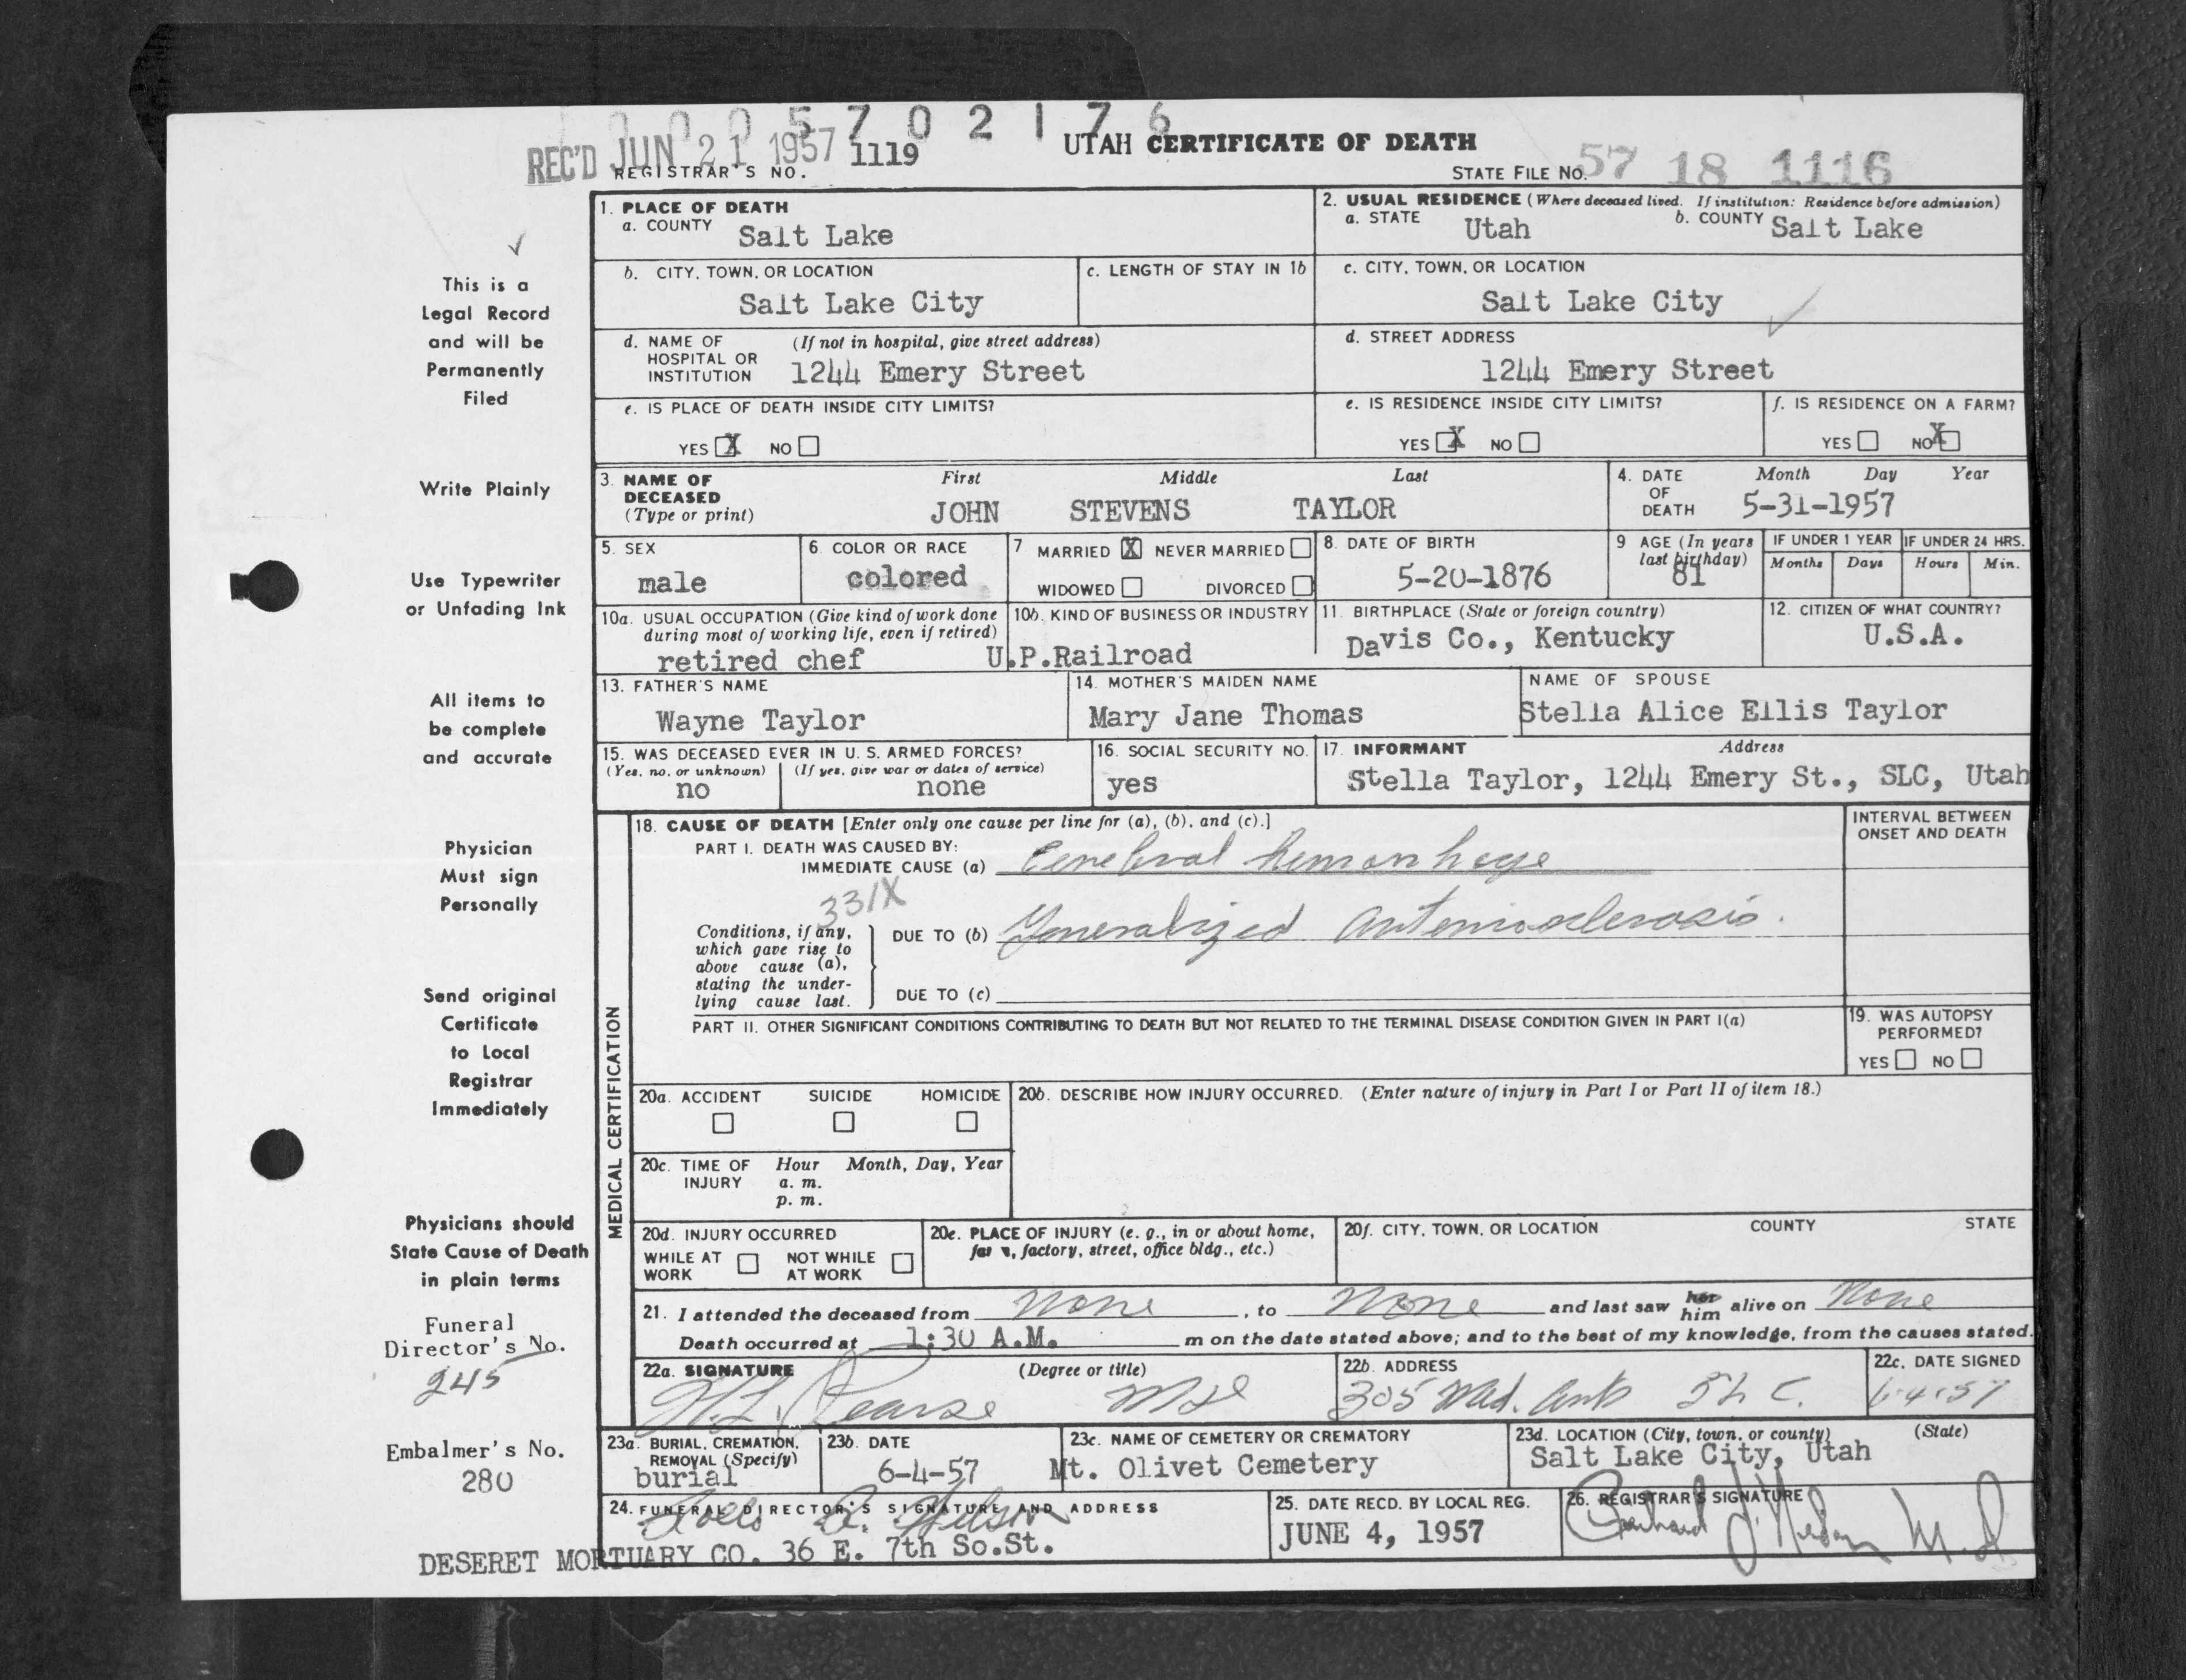 0 0 0 5 7 0 2 1 7 6
REC'D JUN 21 1957
REGISTRAR'S NO. 1119
UTAH CERTIFICATE OF DEATH
STATE FILE NO. 57 18 1116
This is a
Legal Record
and will be
Permanently
Filed
Write Plainly
Use Typewriter
or Unfading Ink
All items to
be complete
and accurate
Physician
Must sign
Personally
Send original
Certificate
to Local
Registrar
Immediately
Physicians should
State Cause of Death
in plain terms
Funeral
Director's No.
245
Embalmer's No.
280
1. PLACE OF DEATH
a. COUNTY Salt Lake
2. USUAL RESIDENCE (Where deceased lived. If institution: Residence before admission)
a. STATE Utah b. COUNTY Salt Lake
b. CITY, TOWN, OR LOCATION
Salt Lake City
c. LENGTH OF STAY IN 1b
c. CITY, TOWN, OR LOCATION
Salt Lake City
d. NAME OF (If not in hospital, give street address)
HOSPITAL OR
INSTITUTION 1244 Emery Street
d. STREET ADDRESS
1244 Emery Street
e. IS PLACE OF DEATH INSIDE CITY LIMITS?
YES X NO
e. IS RESIDENCE INSIDE CITY LIMITS?
YES X NO
f. IS RESIDENCE ON A FARM?
YES NO X
3. NAME OF DECEASED (Type or print)
First Middle Last
JOHN STEVENS TAYLOR
4. DATE OF DEATH
Month Day Year
5-31-1957
5. SEX
male
6. COLOR OR RACE
colored
7 MARRIED X NEVER MARRIED
WIDOWED DIVORCED
8. DATE OF BIRTH
5-20-1876
9 AGE (In years
last birthday)
81
IF UNDER 1 YEAR
Months Days
IF UNDER 24 HRS.
Hours Min.
10a. USUAL OCCUPATION (Give kind of work done
during most of working life, even if retired)
retired chef
10b. KIND OF BUSINESS OR INDUSTRY
U.P.Railroad
11. BIRTHPLACE (State or foreign country)
Davis Co., Kentucky
12. CITIZEN OF WHAT COUNTRY?
U.S.A.
13. FATHER'S NAME
Wayne Taylor
14. MOTHER'S MAIDEN NAME
Mary Jane Thomas
NAME OF SPOUSE
Stella Alice Ellis Taylor
15. WAS DECEASED EVER IN U. S. ARMED FORCES?
(Yes, no, or unknown) (If yes, give war or dates of service)
no none
16. SOCIAL SECURITY NO.
yes
17. INFORMANT Address
Stella Taylor, 1244 Emery St., SLC, Utah
MEDICAL CERTIFICATION
18. CAUSE OF DEATH [Enter only one cause per line for (a), (b), and (c).]
PART I. DEATH WAS CAUSED BY:
IMMEDIATE CAUSE (a) Cerebral hemorrhage
331X
Conditions, if any,
which gave rise to
above cause (a),
stating the under-
lying cause last.
DUE TO (b) Generalized Arteriosclerosis.
DUE TO (c)
INTERVAL BETWEEN
ONSET AND DEATH
PART II. OTHER SIGNIFICANT CONDITIONS CONTRIBUTING TO DEATH BUT NOT RELATED TO THE TERMINAL DISEASE CONDITION GIVEN IN PART I(a)
19. WAS AUTOPSY
PERFORMED?
YES NO
20a. ACCIDENT SUICIDE HOMICIDE
20b. DESCRIBE HOW INJURY OCCURRED. (Enter nature of injury in Part I or Part II of item 18.)
20c. TIME OF INJURY Hour Month, Day, Year
a. m.
p. m.
20d. INJURY OCCURRED
WHILE AT WORK NOT WHILE AT WORK
20e. PLACE OF INJURY (e. g., in or about home,
factory, street, office bldg., etc.)
20f. CITY, TOWN, OR LOCATION COUNTY STATE
21. I attended the deceased from None, to None and last saw her him alive on None
Death occurred at 1:30 A.M. m on the date stated above; and to the best of my knowledge, from the causes stated.
22a. SIGNATURE (Degree or title)
H.L. Pearse MD
22b. ADDRESS
305 Med. Arts SLC.
22c. DATE SIGNED
6-4-57
23a. BURIAL, CREMATION,
REMOVAL (Specify)
burial
23b. DATE
6-4-57
23c. NAME OF CEMETERY OR CREMATORY
Mt. Olivet Cemetery
23d. LOCATION (City, town, or county) (State)
Salt Lake City, Utah
24. FUNERAL DIRECTOR'S SIGNATURE AND ADDRESS
DESERET MORTUARY CO. 36 E. 7th So.St.
25. DATE RECD. BY LOCAL REG.
JUNE 4, 1957
26. REGISTRAR'S SIGNATURE
M.D